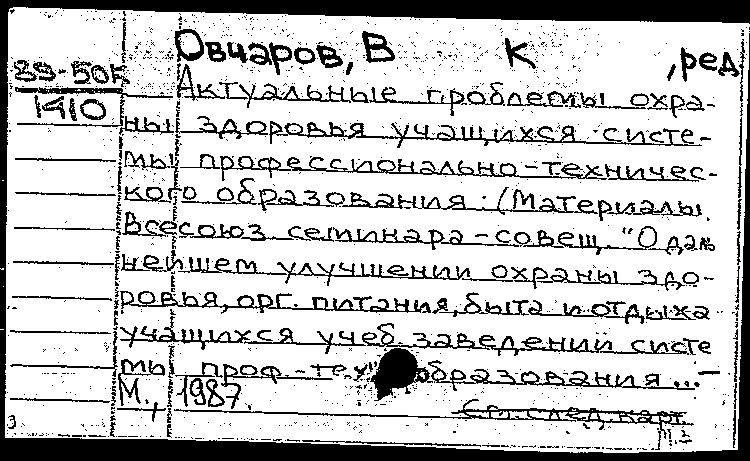 Овчаров, В К , ред
89-50к
1410
Актуальные проблемы охра-
ны здоровья учащихся систе-
мы профессионально-техничес-
кого образования : (Материалы
Всесоюз семинара-совещ. "О даль
нейшем улучшении охраны здо-
ровья, орг. питания, быта и отдыха
учащихся учеб. заведений систе
мы проф.-тех образования ...-
М., 1987.
См. след. карт.